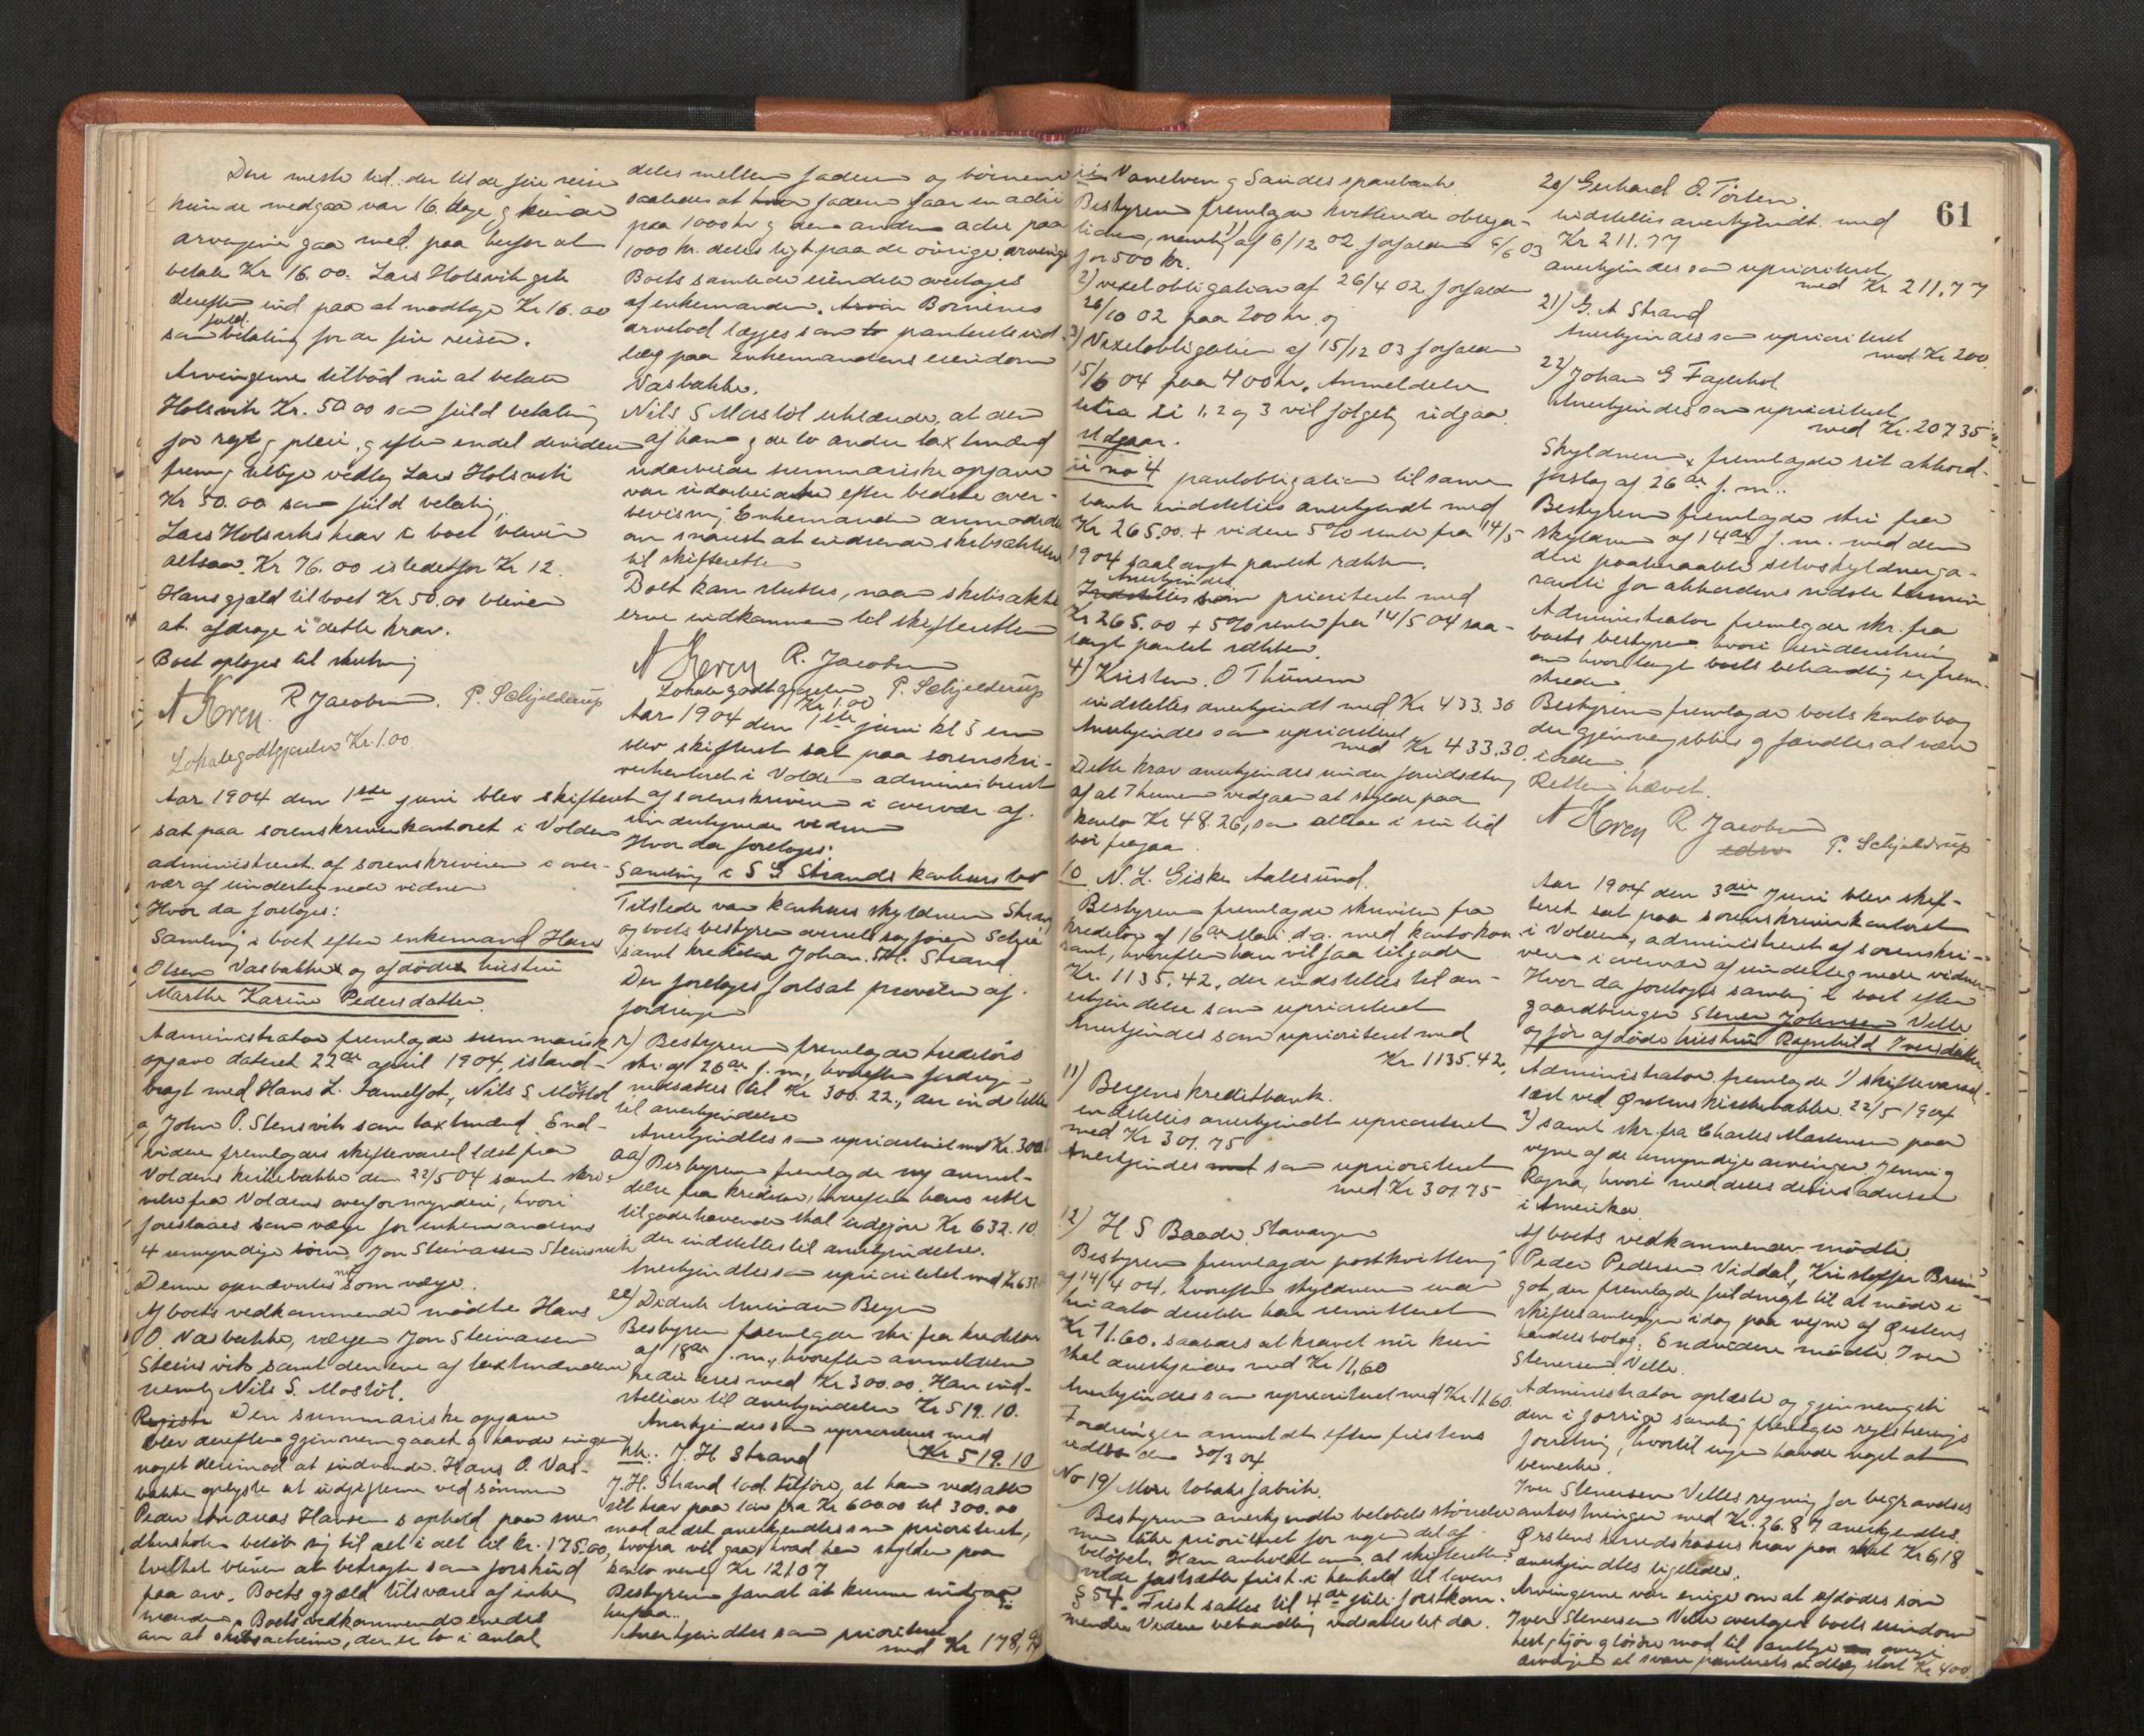 Den meste tid der til de fire reiser
kunde medgaa var 16 dage, g kunde
arvingerne gaa med paa herfor at
betale Kr 16.00. Lars Holsvik gik
derefter ind paa at modtage Kr 16.00
som fuld betaling for de fire reiser.
Arvingerne tilbød nu at betale
Holsvik Kr. 50.00 som fuld betaling
for røgt g pleie, g efter endel
frem g tilbage vedtog Lars Holsvik
Kr 50.00 som fuld betaling.
Lars Holsviks krav i boet bliver
altsaa Kr 76.00 istedetfor Kr 12.
Hans gjæld til boet Kr 50.00 bliver
at afdrage i dette krav.
Boet optages til slutning
R Jacobsen. P. Schjelderup
Lokalegodtgjørelse Kr. 1.00
Aar 1904 den 1ste juni blev skifteret
sat paa sorenskriverkontoret i Volden
administreret af sorenskriveren i over-
vær af undertegnede vidner
Hvor da foretoges:
Samling i boet efter enkemand Hans
Olsen Vasbakke og afdøde hustru
Marthe Karine Pedersdatter.
Administrator fremlagde summarisk
opgave dateret 22de april 1904, istand-
bragt med Hans L. , Nils S Mostøl
g John P. Stensvik som taxtmænd. End-
videre fremlagdes skiftevarsel læst fra
Voldens kirkebakke den 22/5 04 samt skri-
velse fra Voldens overformynderi, hvori
foreslaaes som værge for enkemandens
4 umyndige børn Jon Steinarsen Steinsvik
Denne opnævntes som værge.
Af boets vedkommende mødte Hans
O. Vasbakke, værgen Jon Steinarsen
Steinsvik samt den ene af taxtmændene
nemlig Nils S. Mostøl.
Den summariske opgave
blev derefter gjennemgaaet g havde ingen
noget derimod at indvende. Hans O. Vas-
bakke oplyste at udgifterne ved sønnen
Peder Andreas Hansens ophold paa
beløb sig til alt i alt til Kr. 175.00,
hvilket bliver at betragte som forskud
paa arv. Boets gjæld tilsvares af enke-
manden. Boets vedkommende enedes
om at skibsactierne, der er to i antal
deles mellem faderen og børnene
saaledes at faderen faar en actie
paa 1000 kr g den anden actie paa
1000 kr. deles ligt paa de øvrige arvinger
Boets samlede eiendele overtages
af enkemanden. Børnenes
arvelod lægges som panteretsud-
læg paa enkemandens eiendom
Vasbakke.
Nils S Mostøl erklærede, at den
af ham g de to andre taxtmænd
udarbeide summariske opgave
var udarbeidet efter bedste over-
bevisning. Enkemanden anmodedes
om snarest at indsende skibsaktierne
til skifteretten
Boet kan sluttes, naar skibsakti-
erne indkommer til skifteretten
R. Jacobsen
Lokalegodtgjørelse P. Schjelderup
Kr 1.00
Aar 1904 den 1ste juni kl 5 em
blev skifteret sat paa sorenskri-
verkontoret i Volden administreret
af sorenskriveren i overvær af
undertegnede vidner
Hvor da foretoges:
Samling i S G Strands konkursbo
Tilstede var konkursskyldneren Strand
og boets bestyrer overretssagfører Schjel
samt kreditor Johan. H. Strand
Der foretoges fortsat prøvelse af
fordringer
r) Bestyreren fremlagde kreditors
skr af 26de f.m., hvorefter fordringen
nedsættes til Kr 300.22, der indstilles
til anerkjendelse
Anerkjendtes som uprioriteret med Kr. 300.
aa) Bestyreren fremlagde ny anmel-
delse fra kreditor, hvorefter hans rette
tilgodehavende skal udgjøre Kr 632.10
der indstilles til anerkjendelse.
Anerkjendtes som uprioritetet med Kr 632.
ee) Didrik Bergen
Bestyreren fremlagde skr fra kreditor
af 18de f.m., hvorefter anmeldelsen
reduceres med Kr 300.00. Han ind-
stilledes til anerkjendelse Kr 519.10.
Anerkjendes som uprioriteret med
Kr 519.10
hh: J. H Strand
J.H. Strand lod tilføre, at han nedsatte
sit krav paa løn fra Kr 600.00 til 300.00
mod at det anerkjendtes som prioriteret,
hvorfra vil gaa, hvad han skylder paa
konto Kr 121.07
Bestyreren fandt at kunne indgaa
herpaa.
Anerkjendtes som prioriteret
med Kr 178,93
Vanelven g Sandes sparebank
Bestyreren fremlagde kvitterede obliga-
tioner, nemlig 1) af 6/12 02 forfalden 6/6 03
for 500 kr.
2) vexelobligation af 26/4 02 forfalden
26/10 02 paa 200 kr. og
3) Vexelobligation af 15/12 03 forfalden
15/6 04 paa 400 kr. Anmeldelse
litra ii 1, 2 og 3 vil følgelig udgaa.
Udgaar.
ii no 4 pantobligation til samme
bank indstilles anerkjendt med
Kr 265.00. + videre 5% rente fra 14/5
1904 saalangt pantet rækker.
Anerkjendes som prioriteret med
Kr 265.00 + 5% rente fra 14/5 04 saa-
langt pantet rækker.
4) Kristen O Thunem
indstilles anerkjendt med Kr 433.30
Anerkjendes som uprioriteret
med Kr 433.30.
Dette krav anerkjendes under forudsætning
af at Thunem vedgaar at skylde paa
konto Kr 48.26, som altsaa i sin tid
bør fragaa.
10 N. L. Giske Aalesund.
Bestyreren fremlagde skrivelse fra
kreditor af 16de Mai d.a. med kontokou-
rant, hvorefter han vil faa tilgode
Kr. 1135.42, der indstilles til an-
erkjendelse som uprioriteret
Anerkjendes som uprioriteret med
Kr. 1135.42,
11) Bergens kreditbank.
indstilles anerkjendt uprioriteret
med Kr 301.75
Anerkjendes som uprioriteret
med Kr 301.75
12) H S Baade Stavanger
Bestyreren fremlagde postkvittering
af 14/4 04, hvorefter skyldneren
direkte har remitteret
Kr 71.60, saaledes at kravet nu kun
skal anerkjendes med Kr 11,60
Anerkjendes som uprioriteret med Kr. 11.60.
Fordringer anmeldt efter fristens
udløb den 30/3 04.
No 19) Møre tobaksfabrik.
Bestyreren anerkjendte beløbets størrelse
men ikke prioritet for nogen del af
beløbet. Han anholdt om, at skifteretten
vilde fastsætte frist i henhold til lovens
§ 54. Frist sattes til 4de juli førstkom-
mende. Videre behandling udsættes til da.
61
20) Gerhard O. Torsten.
indstilles anerkjendt med
Kr 211.77
anerkjendes som uprioriteret
med Kr 211.77
21) G. A Strand
Anerkjendes som uprioriteret
med Kr 200.
22) Johan G Fagerhol
Anerkjendes som uprioriteret
med Kr. 207 35
Skyldneren fremlagde sit akkord-
forslag af 26de f.m..
Bestyreren fremlagde skr fra
skyldneren af 14de f.m. med den
deri paaberaabte selvskyldnerga-
ranti for akkordens sidste termin
Administrator fremlagde skr. fra
boets bestyrer hvori
om hvor langt boets behandling er frem-
skreden
Bestyreren fremlagde boets kontobog
der gjennemgikkes g fandtes at være
i orden
Retten hævet.
R. Jacobsen
P. Schjelderup
Aar 1904 den 3die Juni blev skif-
teret sat paa sorenskriverkontoret
i Volden, administreret af sorenskri-
veren i overvær af undertegnede vidner
Hvor da foretoges samling i boet efter
gaardbruger Stener Johnsen Velle
og før afdøde hustru Ragnhild Iversdatter
Administrator fremlagde 1) skiftevarsel
læst ved Ørstens kirkebakke 22/5 1904
2) samt skr. fra Charles Martinsen paa
vegne af de umyndige arvinger Jenny g
Ragna, hvori meddeles deres adresse
i Amerika.
Af boets vedkommende mødte
Peder Pedersen Viddal, Kristoffer Brun-
got, der fremlagde fuldmagt til at møde i
skiftesamlingen idag paa vegne af Ørstens
handelsbolag. Endvidere mødte Iver
Stenersen Velle.
Administrator oplæste og gjennemgik
den i forrige samling fremlagte registrerings
forretning, hvortil ingen havde noget at
bemerke.
Iver Stenersen Velles regning for begravelses
omkostninger med Kr. 26.87 anerkjendtes.
Ørstens herredskasses krav paa skat Kr 6,18
anerkjendtes ligeledes.
Arvingerne var enige om at afdødes søn
Iver Stenersen Velle overtager boets eiendom
g løsøre mod til samtlige øvrige
arvinger at svare panterets udlæg stort Kr 400.